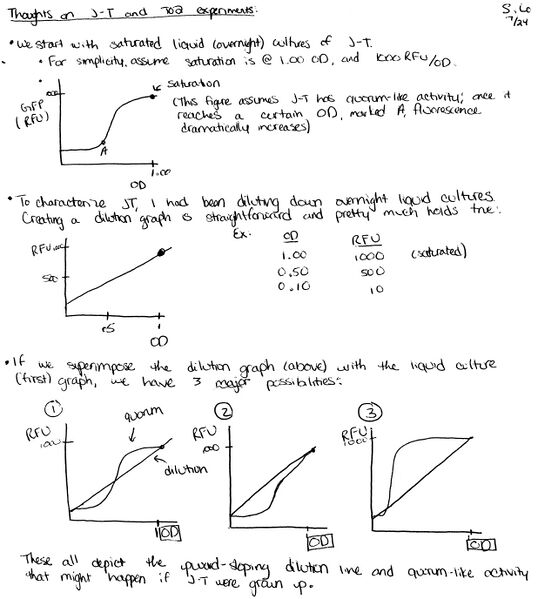 Thoughts on J-T and T02 experiments:
S. Lo
7/24
• We start with saturated liquid (overnight) cultures of J-T.
• For simplicity, assume saturation is @ 1.00 OD, and 1000 RFU/OD.
GFP
(RFU)
1000
saturation
(This figure assumes J-T has quorum-like activity; once it
reaches a certain OD, marked A, fluorescence
dramatically increases)
A
1.00
OD
• To characterize JT, I had been diluting down overnight liquid cultures.
Creating a dilution graph is straightforward and pretty much holds true:
RFU 1000
500
.5
1
OD
Ex. OD RFU
1.00 1000 (saturated)
0.50 500
0.10 10
• If we superimpose the dilution graph (above) with the liquid culture
(first) graph, we have 3 major possibilities:
1
RFU
1000
quorum
dilution
1
OD
2
RFU
1000
OD
3
RFU
1000
OD
These all depict the upward-sloping dilution line and quorum-like activity
that might happen if J-T were grown up.